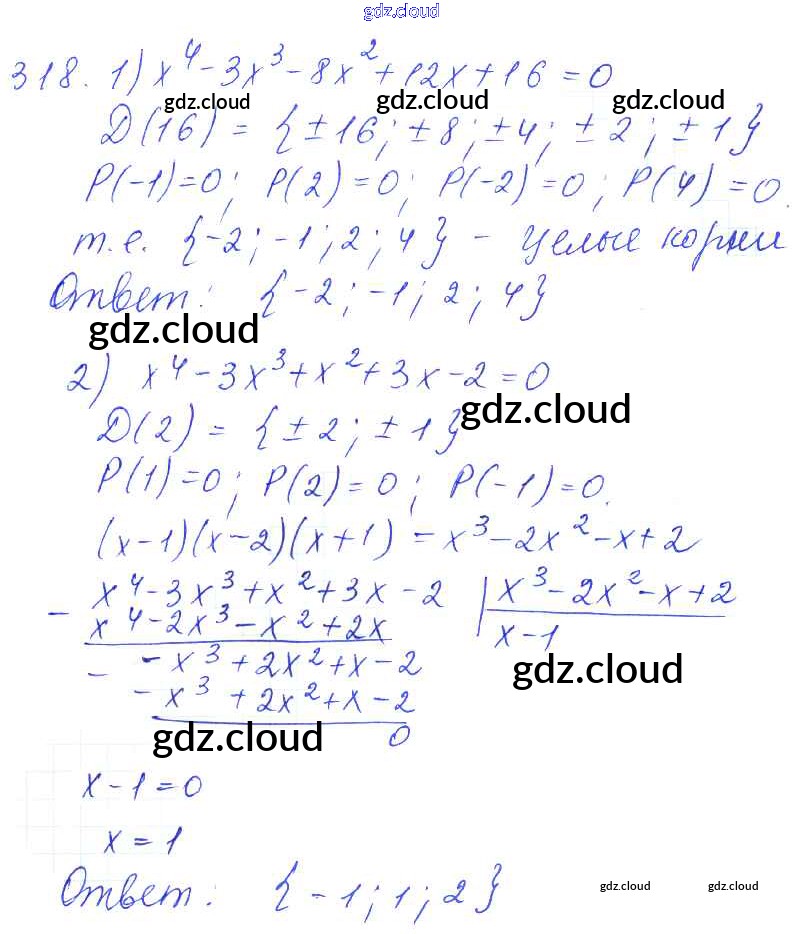 gdz.cloud
318. 1) x⁴ - 3x³ - 8x² + 12x + 16 = 0
gdz.cloud gdz.cloud gdz.cloud
D(16) = {±16; ±8; ±4; ±2; ±1}
P(-1)=0; P(2)=0; P(-2)=0; P(4)=0.
т.е. {-2; -1; 2; 4} - целые корни
Ответ: {-2; -1; 2; 4}
gdz.cloud
2) x⁴ - 3x³ + x² + 3x - 2 = 0
gdz.cloud
D(2) = {±2; ±1}
P(1)=0; P(2)=0; P(-1)=0.
(x-1)(x-2)(x+1) = x³ - 2x² - x + 2
- x⁴ - 3x³ + x² + 3x - 2 | x³ - 2x² - x + 2
x⁴ - 2x³ - x² + 2x x - 1
- - x³ + 2x² + x - 2
gdz.cloud
- x³ + 2x² + x - 2
gdz.cloud
0
x - 1 = 0
x = 1
Ответ: {-1; 1; 2}
gdz.cloud gdz.cloud